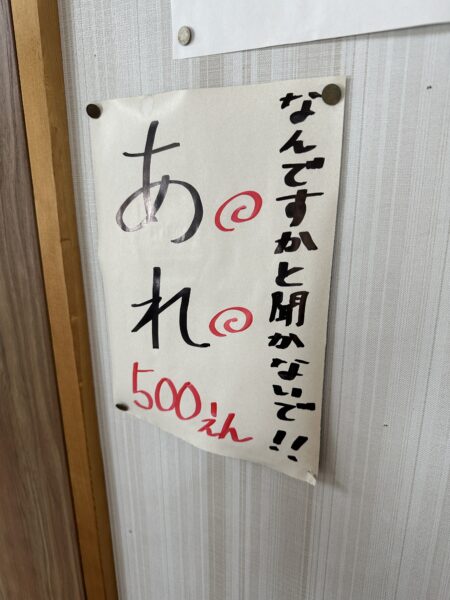 なんですかと聞かないで!!
あ
れ
500えん